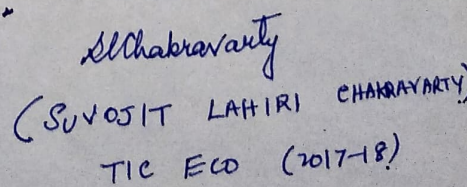 SLChakravarty
(SUVOJIT LAHIRI CHAKRAVARTY)
TIC ECO (2017-18)